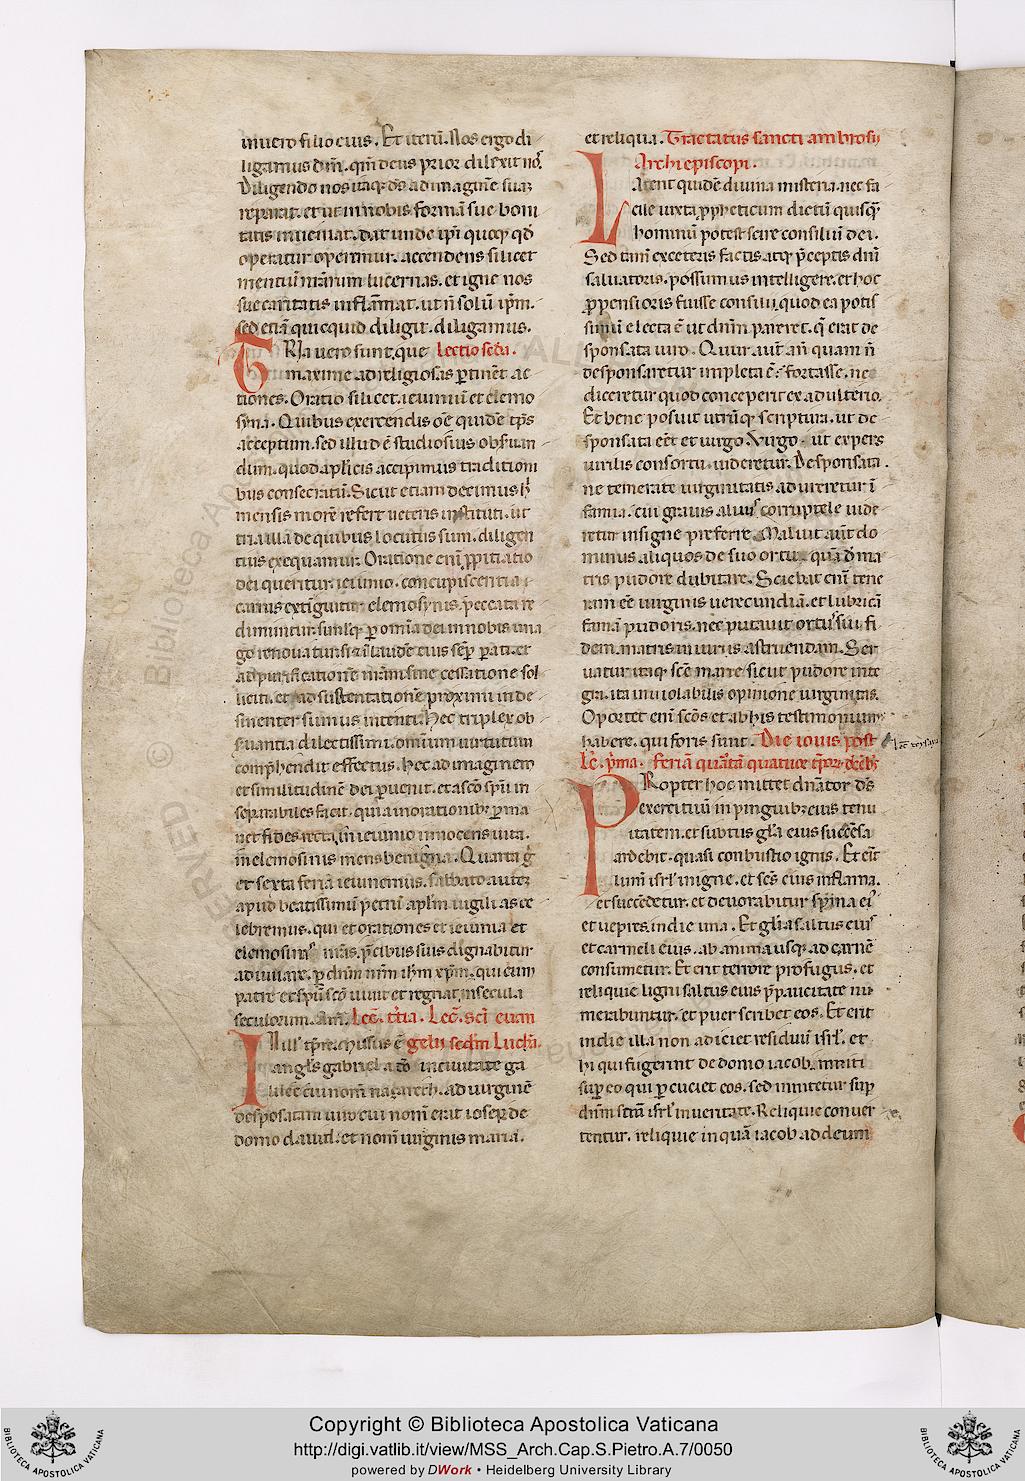 in uero filio eius. Et iterũ. Nos ergo di
ligamus dm̃. qm̃ deus prior dilexit nos.
Diligendo nos itaq; ds̃ ad imaginẽ suã
reparat. et ut in nobis formã sue boni
tatis inueniat. dat unde ip̃i quoq; qd̃
operatur operemur. accendens silicet
mentiũ nr̃arum lucernas. et igne nos
sue caritatis inflãmat. ut ñ solũ ip̃m.
sed etiã quicquid diligit. diligamus.
TRIa uero sunt. que Lectio scd̃a.
maxime ad religiosas ptinẽt ac
tiones. Oratio silicet. ieiuniũ et elemo
syna. Quibus exercendis oẽ quidẽ tp̃s
acceptum. sed illud ẽ studiosius obseruan
dum. quod aplicis accipimus traditioni
bus consecratũ. Sicut etiam decimus h̃
mensis morẽ refert ueteris instituti. ut
tria illa de quibus locutus sum. diligen
tius exequamur. Oratione enĩ ppitiatio
dei queritur. ieiunio. concupiscentia
carnis extĩguitur. elemosynis. peccata re
dimuntur. simulq; p omĩa dei in nobis ima
go renouatur. si & ĩ laudẽ eius semp parati. et
ad purificationẽ nr̃am sine cessatione sol
liciti. et ad sustentationẽ proximi inde
sinenter sumus intenti. Hec triplex ob
seruantia dilectissimi. omnium uirtutum
comp̃hendit effectus. hec ad imaginem
et similitudinẽ dei puenit. et a sc̃o sp̃u in
separabiles facit. quia in orationibꝰ pma
net fides recta. in ieiunio innocens uita.
in elemosinis mens benigna. Quarta g̃
et sexta feria ieiunemus. sabbato autẽ
apud beatissimũ petrũ ap̃lm uigilias ce
lebremus. qui et orationes et ieiunia et
elemosinas nr̃as. p̃cibus suis dignabitur
adiuuare. p dñm nr̃m ih̃m xp̃m. qui cum
patre et sp̃u sc̃o uiuit et regnat in secula
seculorum. am̃. Lec̃. tr̃ia. Lec̃. sc̃i euan
IN ill̃ tp̃re. Missus ẽ gelii sec̃dm Lucã.
angl̃s gabriel a dõ. in ciuitatẽ ga
lileẽ cui nom̃ nazareth. ad uirginẽ
desponsatam uiro cui nom̃ erat ioseph de
domo dauid. et nom̃ uirginis maria.
et reliqua. Tractatus sancti ambrosij
Archiepiscopi.
LAtent quidẽ diuina misteria. nec fa
cile iuxta p̃pheticum dictũ quisq̃
hominũ potest scire consiliũ dei.
Sed tam̃ ex ceteris factis atq; p̃ceptis dñi
saluatoris. possumus intelligere. et hoc
p̃pensioris fuisse consilii. quod ea potis
simũ electa ẽ ut dñm pareret. q̃ erat de
sponsata uiro. Cur aut̃ añ quam ñ
desponsaretur impleta ẽ? fortasse. ne
diceretur quod conceperit ex adulterio.
Et bene posuit utrũq; scriptura. ut de
sponsata eẽt et uirgo. Virgo. ut expers
uirilis consortii. uideretur. Desponsata.
ne temerate uirginitatis adureretur ĩ
famia. cui grauis aluus corruptele uide
retur insigne preferre. Maluit aut̃ do
minus aliquos de suo ortu. quã de ma
tris pudore dubitare. Sciebat enĩ tene
ram eẽ uirginis uerecundiã. et lubricã
famã pudoris. nec putauit ortus sui fi
dem. matris iniuriis astruendam. Ser
uatur itaq; sc̃e marie sicut pudore inte
gra. ita inuiolabilis opinione uirginitas.
Oportet enĩ sc̃os et ab his testimonium
habere. qui foris sunt. Die iouis post
Lc̃. p̃ma. feriã quartã quatuor tp̃or. decẽb̃.
PRopter hoc mittet dñator ds̃
exercituũ in pinguibꝰ eius tenu
itatem. et subtus gl̃a eius succẽsa
ardebit. quasi conbustio ignis. Et erit
lumẽ isrl̃ in igne. et sc̃s eius in flãma.
et succẽdetur. et deuorabitur spina eiꝰ
et uepres. in die una. Et gl̃ia saltus eiꝰ
et carmeli eius. ab anima usq; ad carnẽ
consumetur. Et erit terrore profugus. et
reliquie ligni saltus eius p̃ paucitate nu
merabuntur. et puer scribet eos. Et erit
in die illa non adiciet residuũ isrl̃. et
hi qui fugerint de domo iacob. inniti
sup eo qui pcutiet eos. sed innitetur sup
dñm sc̃m isrl̃ in ueritate. Reliquie conuer
tentur. reliquie inquã iacob. ad deum
Copyright © Biblioteca Apostolica Vaticana
http://digi.vatlib.it/view/MSS_Arch.Cap.S.Pietro.A.7/0050
powered by DWork • Heidelberg University Library
BIBLIOTECA APOSTOLICA VATICANA
BIBLIOTECA APOSTOLICA VATICANA